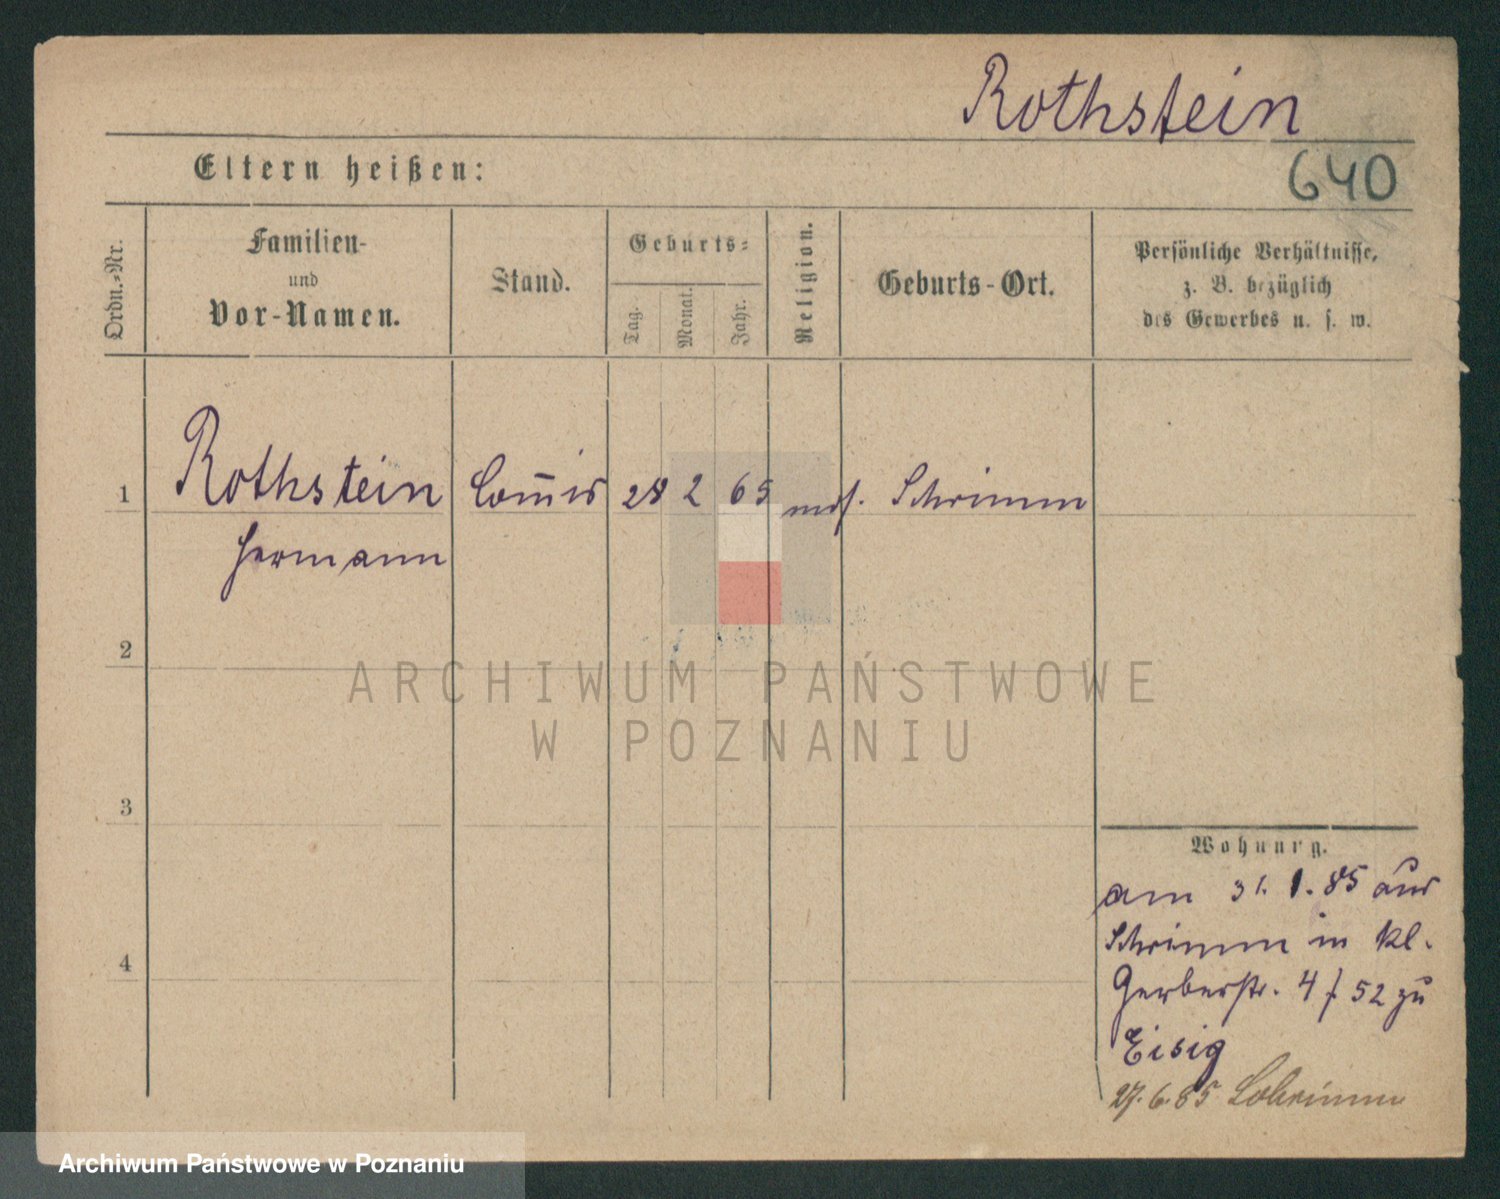 Rothstein
640
Eltern heißen:
Ordn.-Nr.
Familien-
und
Vor-Namen.
Stand.
Geburts-
Tag.
Monat.
Jahr.
Religion.
Geburts-Ort.
Persönliche Verhältnisse,
z. B. bezüglich
des Gewerbes u. s. w.
1 Rothstein Com̄is 28 2 65 mos. Schrimm
Hermann
2
3
4
ARCHIWUM PAŃSTWOWE
W POZNANIU
Wohnung.
am 31. 1. 85 aus
Schrimm in kl.
Gerberstr. 4 f 52 zu
Eisig
27.6.85 Schrimm
Archiwum Państwowe w Poznaniu